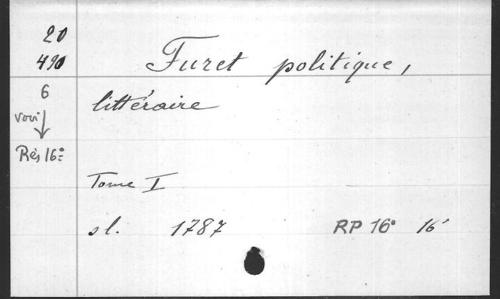 20
490
6
voir
Rés 16º
Furet politique,
littéraire
Tome I
sl. 1787 RP 16º 16'